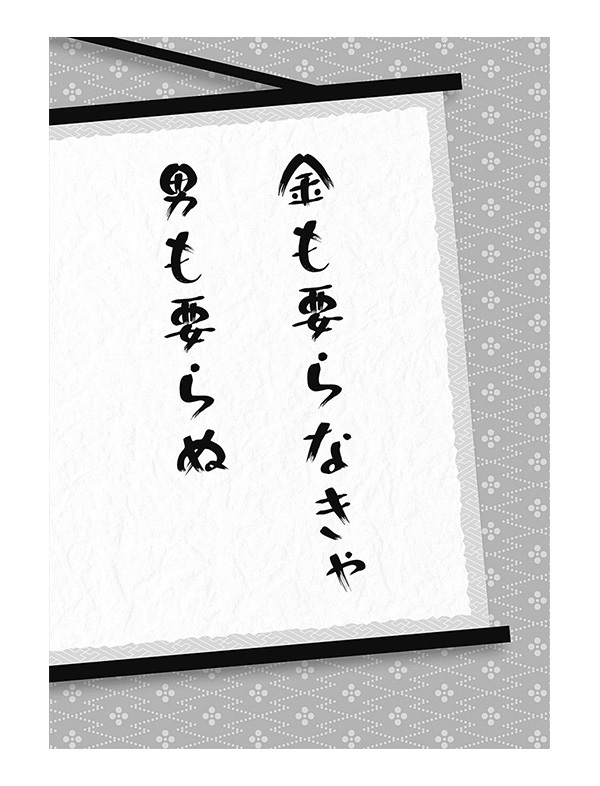 金も要らなきゃ
男も要らぬ